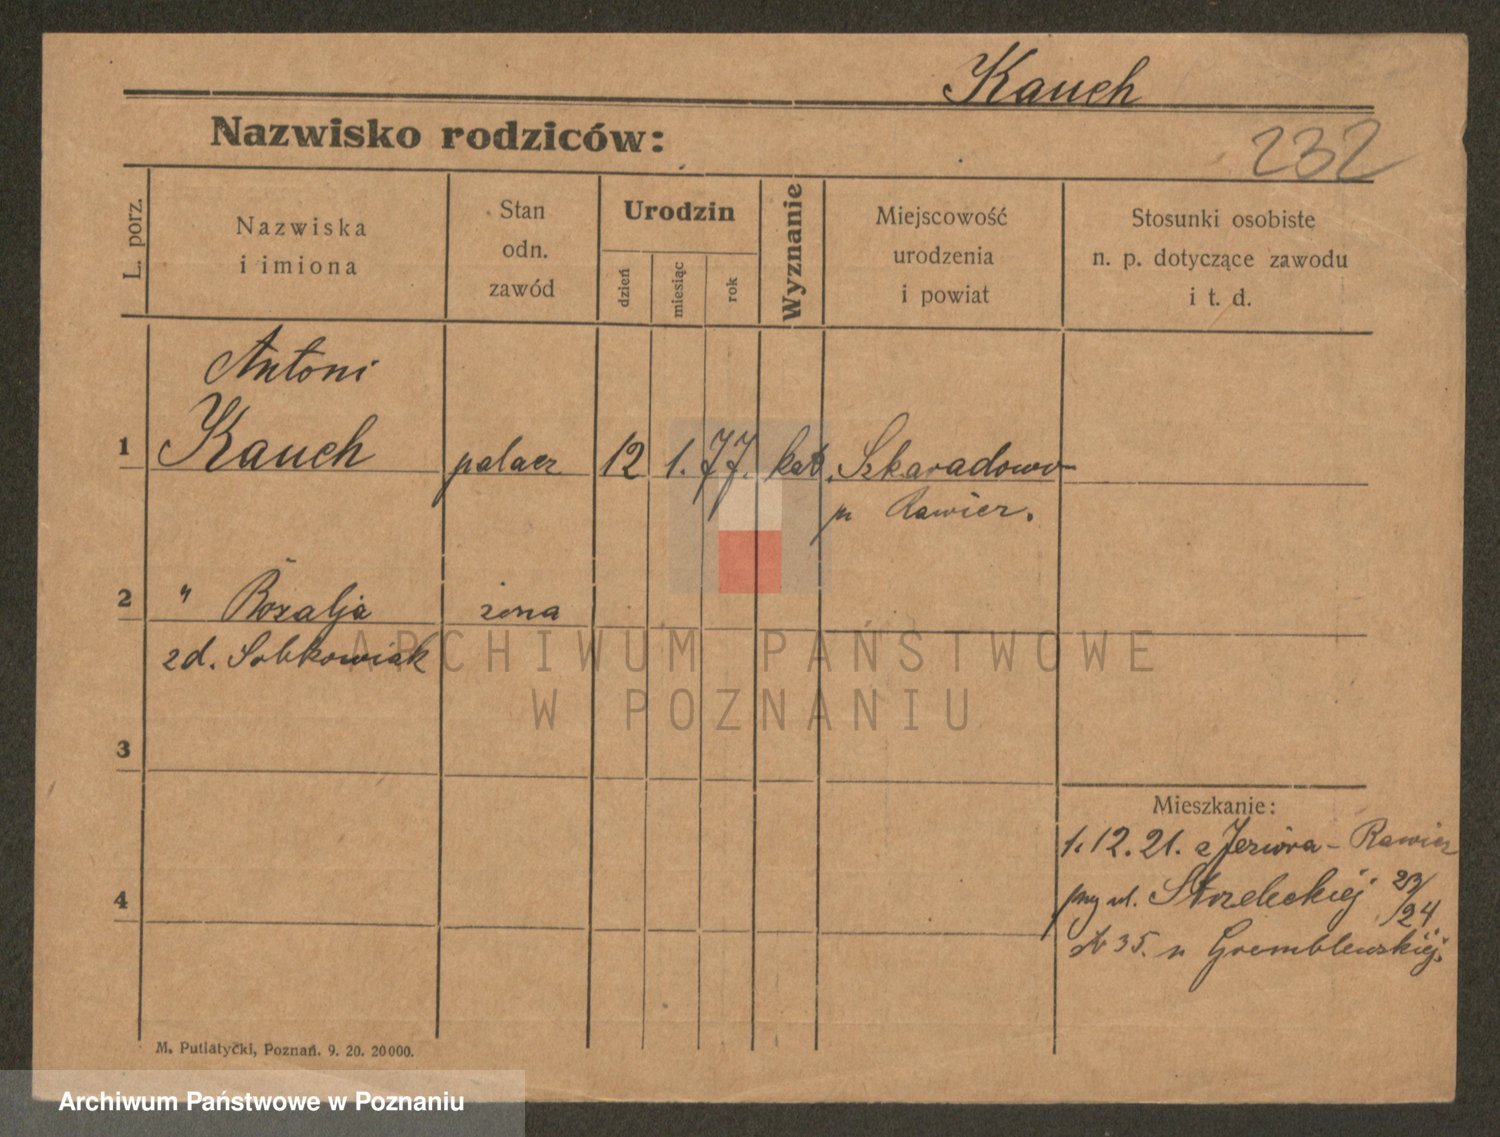 Kauch
232
Nazwisko rodziców:
L. porz.
Nazwiska
i imiona
Stan
odn.
zawód
Urodzin
dzień
miesiąc
rok
Wyznanie
Miejscowość
urodzenia
i powiat
Stosunki osobiste
n. p. dotyczące zawodu
i t. d.
Antoni
1 Kauch palacz 12 1. 77. kat. Szkaradowo
p. Rawicz.
2 " Rozalja żona
zd. Sobkowiak
ARCHIWUM PAŃSTWOWE
W POZNANIU
3
Mieszkanie:
1. 12. 21. z Jeziora - Rawicz
4 przy ul. Strzeleckiej 23/24
35. u Gremblewskiej.
M. Putiatycki, Poznań. 9. 20. 20000.
Archiwum Państwowe w Poznaniu